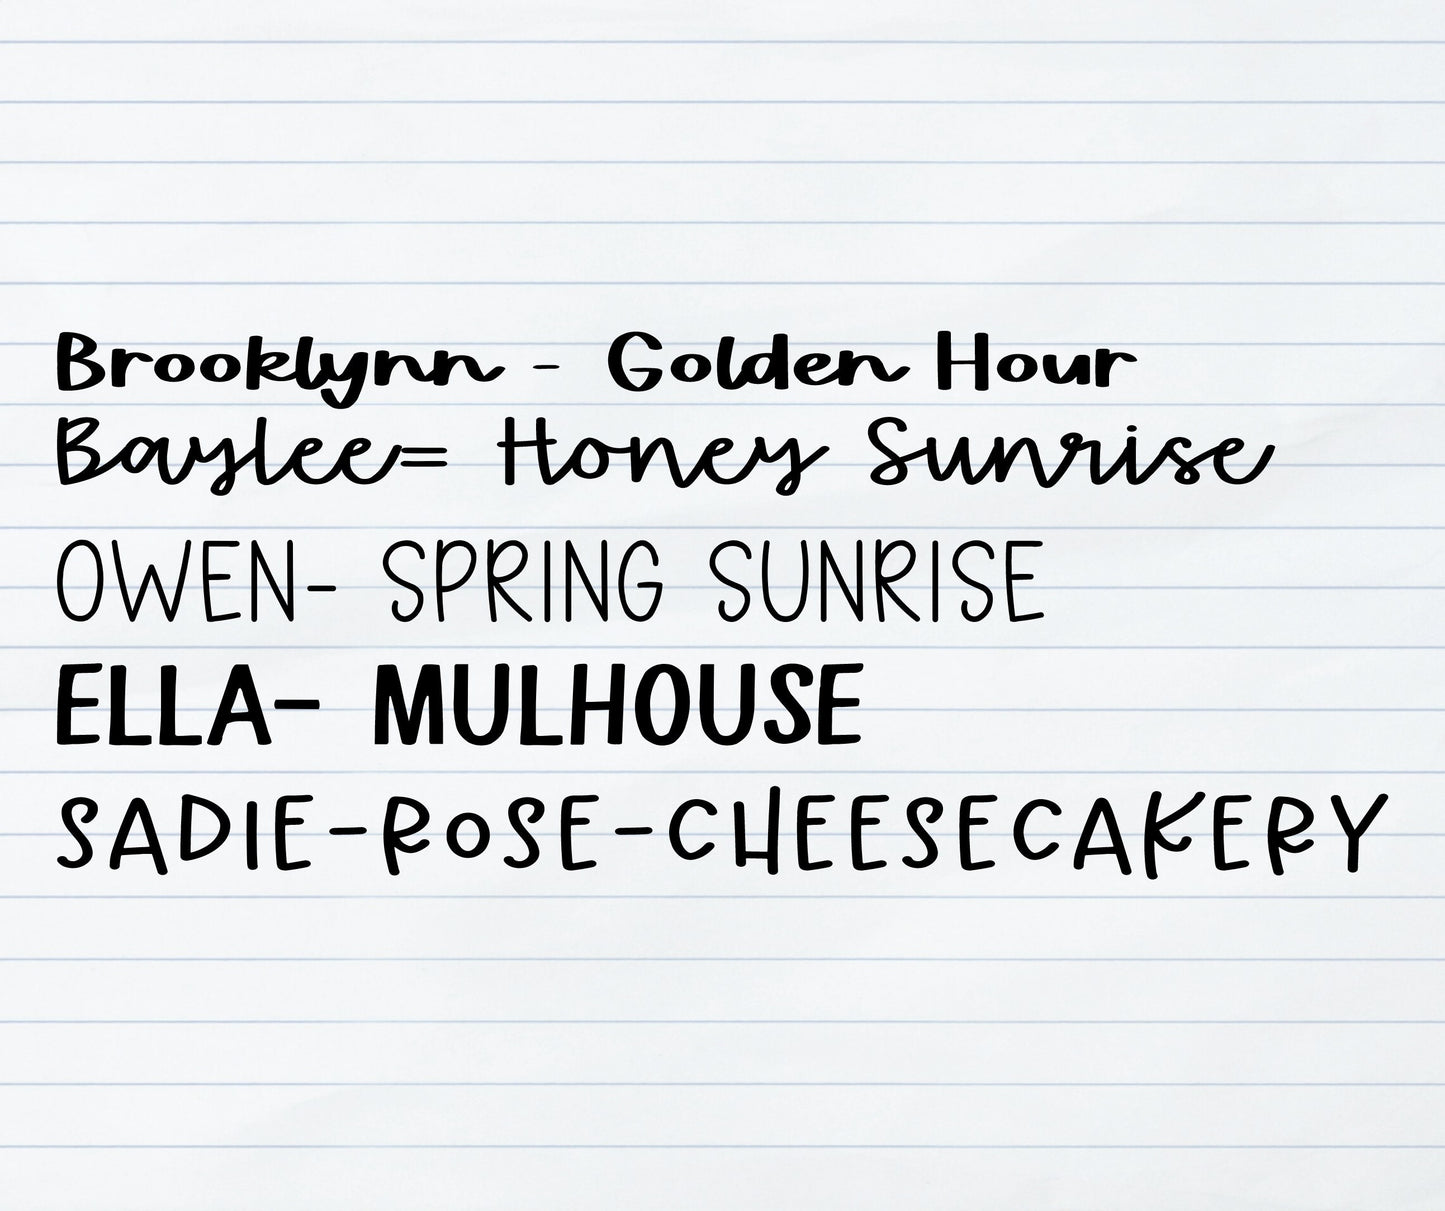 Brooklynn - Golden Hour
Baylee= Honey Sunrise
OWEN- SPRING SUNRISE
ELLA- MULHOUSE
SADIE-ROSE-CHEESECAKERY